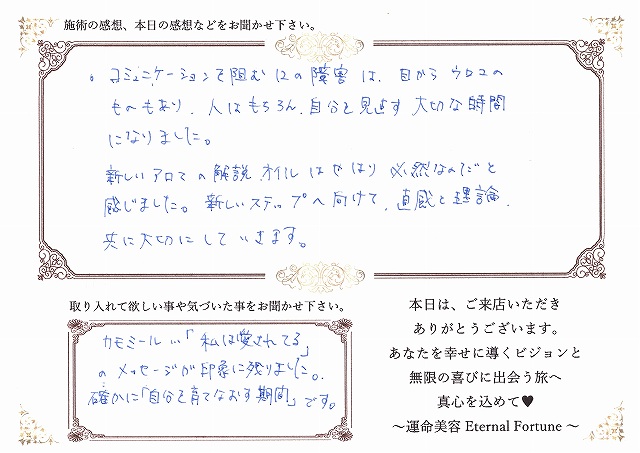 施術の感想、本日の感想などをお聞かせ下さい。
。コミュニケーションで阻む12の障害は、目からウロコの
ものもあり、人はもちろん、自分を見直す大切な時間
になりました。
新しいアロマの解説、オイルはやはり必然なのだと
感じました。新しいステップへ向けて、直感と理論、
共に大切にしていきます。
取り入れて欲しい事や気づいた事をお聞かせ下さい。
カモミール…「私は愛されてる」
のメッセージが印象に残りました。
確かに「自分を育てなおす期間」です。
本日は、ご来店いただき
ありがとうございます。
あなたを幸せに導くビジョンと
無限の喜びに出会う旅へ
真心を込めて♥
～運命美容 Eternal Fortune ～